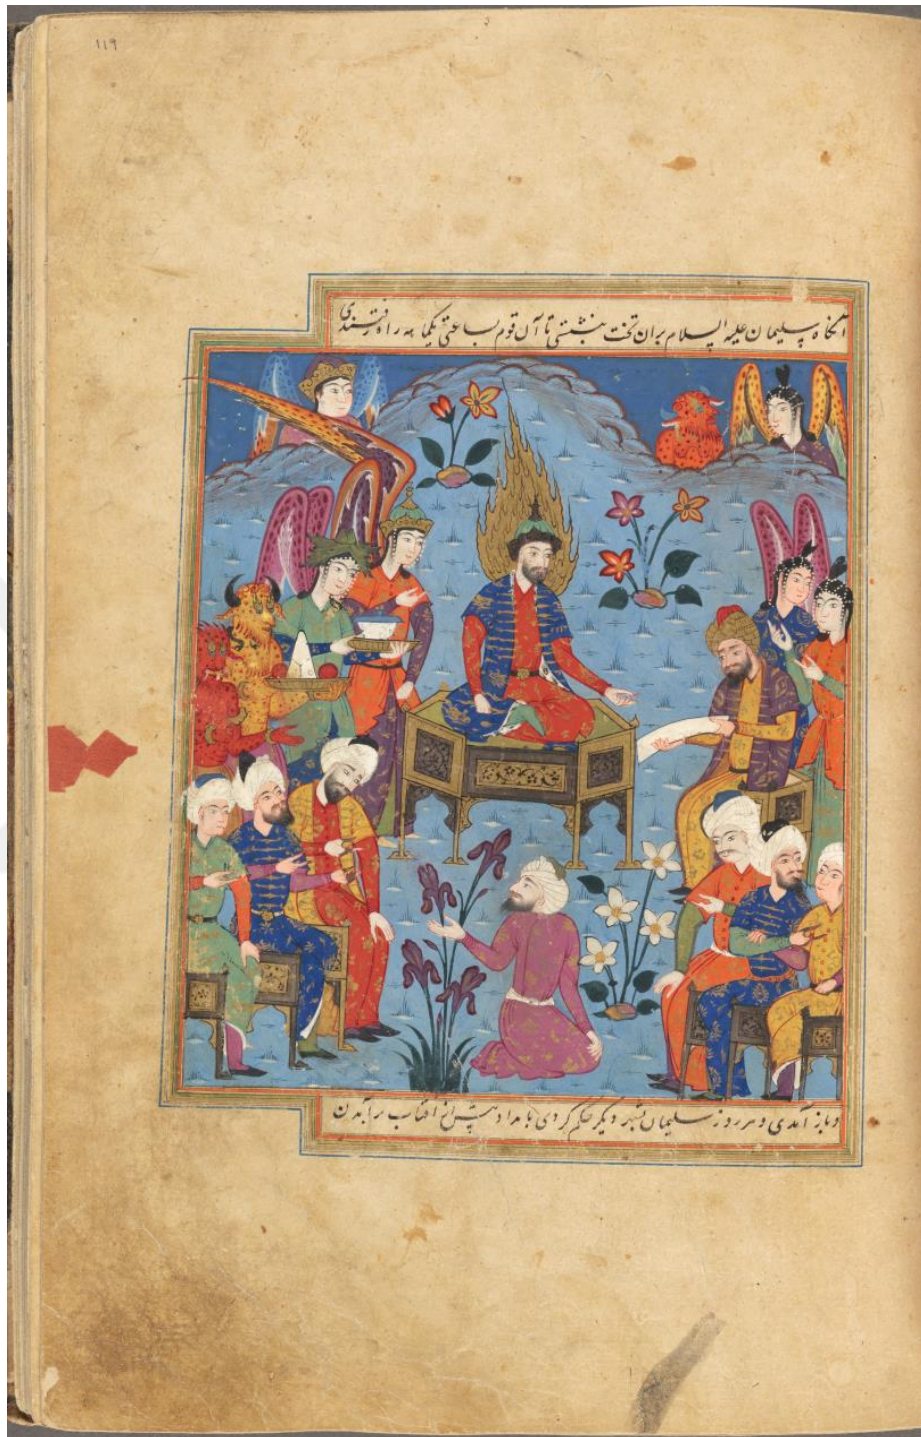 ۱۱۹
آنگاه سلیمان علیه السلام بران تخت بنشستی تا آن قوم بساعتی یکماهه راه رفتندی
و باز آمدی و هر روز سلیمان بشهر دیگر حکم کردی بامداد پیش از افتاب برآمدن